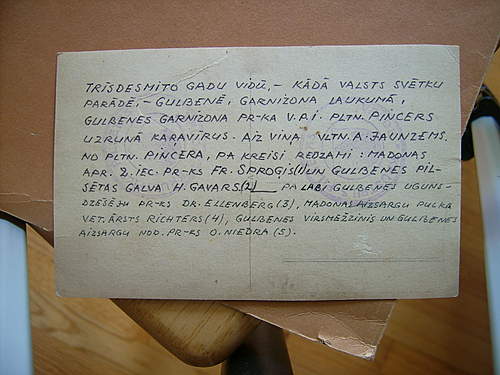 TRĪSDESMITO GADU VIDŪ,- KĀDĀ VALSTS SVĒTKU
PARĀDĒ,- GULBENĒ, GARNIZONA LAUKUMĀ,
GULBENES GARNIZONA PR-KA V.P.I. PLTN. PINCERS
UZRUNĀ KAŖAVĪRUS. AIZ VIŅA VLTN. A. JAUNZEMS.
NO PLTN. PINCERA, PA KREISI REDZAMI: MADONAS
APR. 2. IEC. PR-KS FR. SPROĢIS(1) UN GULBENES PIL-
SĒTAS GALVA H. GAVARS(2) PA LABI GULBENES UGUNS-
DZĒSĒJU PR-KS DR. ELLENBERG(3), MADONAS AIZSARGU PULKA
VET. ĀRSTS RICHTERS(4), GULBENES VIRSMEŽZINIS UN GULBENES
AIZSARGU NOD. PR-KS O. NIEDRA(5).